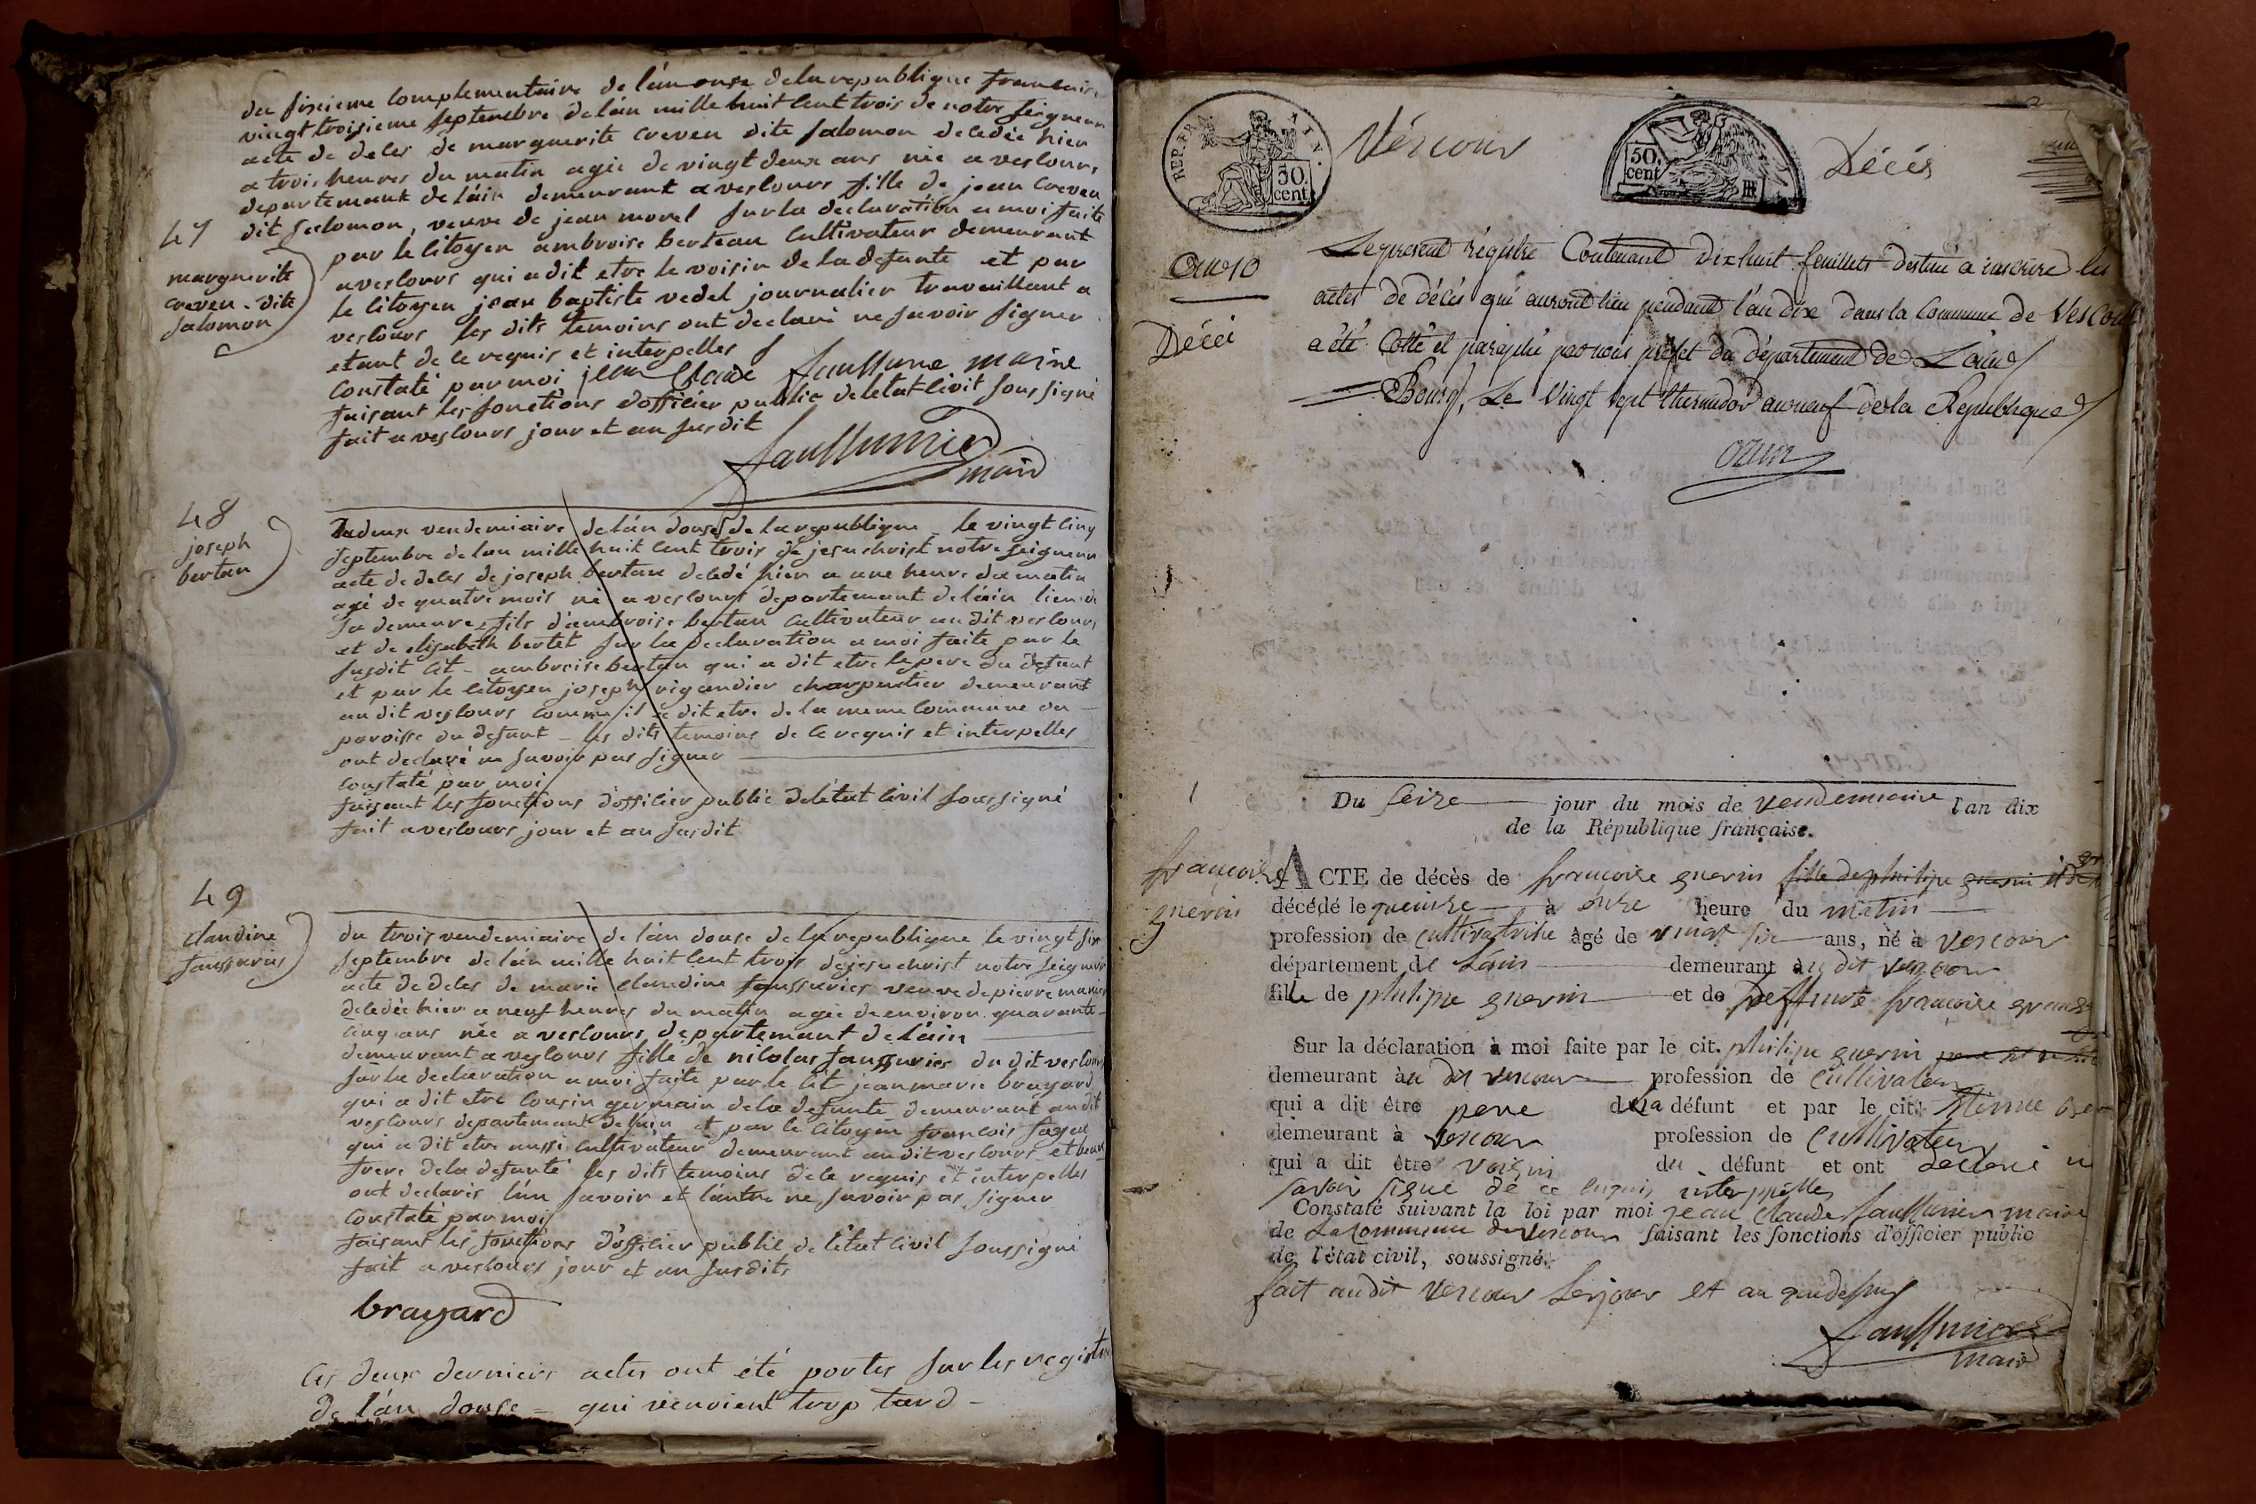 du sixieme complementaire de lán onse dela republique francaise
vingt troisieme septembre de lán mille huit cent trois de notre seigneur
acte de deces de marguerite creven dite salomon decedée hier
a trois heures du matin agée de vingt deux ans née a vescours
departemant de láin demeurant a vescours fille de jean creven
47 dit salomon, veuve de jean morel sur la declaration a moi faite
par le citoyen ambroise berteau cultivateur demeurant
marguerite
creven . dite
salomon
a vescours qui a dit etre le voisin de la defunte et par
le citoyen jean baptiste vedel journalier travaillant a
vescours les dits temoins ont declaré ne savoir signer
etant de ce requis et interpelles
constaté par moi jean Claude saussurie maire
faisant les fonctions dófficier public de letat civil soussigné
fait a vescours jour et an susdit
saussurie
maire
48
joseph
bertau
du deux vendemiaire de lán douse de la republique le vingt cinq
septembre de lan mille huit cent trois de jesu christ notre seigneur
acte de deces de joseph bertau decedé hier a une heure du matin
agé de quatre mois né a vescours departemant de láin lieu de
sa demeure fils dámbroise bertau cultivateur au dit vescours
et de elisabeth bertet sur la declaration a moi faite par le
susdit cit - ambroise bertau qui a dit etre le pere du defunt
et par le citoyen joseph rigaudier charpentier demeurant
au dit vescours comme il a dit etre de la meme commune ou
paroisse du defunt - les dits temoins de ce requis et interpelles
ont declaré ne savoir pas signer
constaté par moi
faisant les fonctions dófficier public de létat civil soussigné
fait a vescours jour et an susdit
49
claudine
saussurie
du trois vendemiaire de lán douse de la republique le vingt six
septembre de lán mille huit cent trois de jesu christ notre seigneur
acte de deces de marie claudine saussurier veuve de pierre
decedée hier a neuf heures du matin agée de environ quarante
cinq ans née a vescours departemant de láin
demeurant a vescours fille de nicolas saussurier du dit vescours
sur la declaration a moi faite par le cit jean marie brayard
qui a dit etre cousin germain de la defunte demeurant au dit
vescours departemant de láin et par le citoyen francois
qui a dit etre aussi cultivateur demeurant au dit vescours et beau
frere de la defunte les dits temoins de ce requis et interpelles
ont declarés lún savoir et lautre ne savoir pas signer
constaté par moi
faisant les fonctions dófficier public de létat civil soussigné
fait a vescours jour et an susdits
brayard
ces deux derniers actes ont été portés sur les registre
de lán douse = qui venoient trop tard -
REP. FRA
50.
cent.
Véscour
50.
cent
Décés
An 10
Décéi
Le present régistre Contenant dix huit feuillets destiné a inscrire les
actes de décés qui auront lieu pendant l'an dix dans la Commune de Vescour
a été Cotté et paraphé par nous préfet du département de L'ain
Bourg, Le vingt sept thermidor an neuf de la Republique
ozun
1
Du seize jour du mois de vendemiaire l'an dix
de la République française.
françoise
guerin
ACTE de décès de françoise guerin fille de philipe guerin
décédé le quinze à onze heure du matin
profession de cultivatrise âgé de vingt six ans, né à vescour
département de Lain demeurant au dit vescour
fille de philipe guerin et de deffunte françoise
Sur la déclaration à moi faite par le cit. philipe guerin
demeurant àu dit vescour profession de cultivateur
qui a dit être pere de la défunt et par le cit.
demeurant à vescour profession de Cultivateur
qui a dit être voisin du défunt et ont declaré n
savoir signe de ce enquis interppellés
Constaté suivant la loi par moi jean claude saussurier maire
de La commune de vescour faisant les fonctions d'officier public
de l'état civil, soussigné.
fait audit vescour Lesjour et an quedessus
saussurier
maire